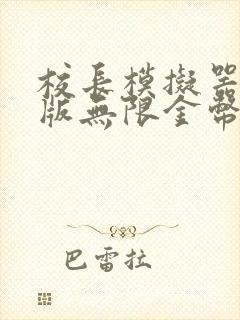 校長模擬器
版無限金幣
巴雷拉